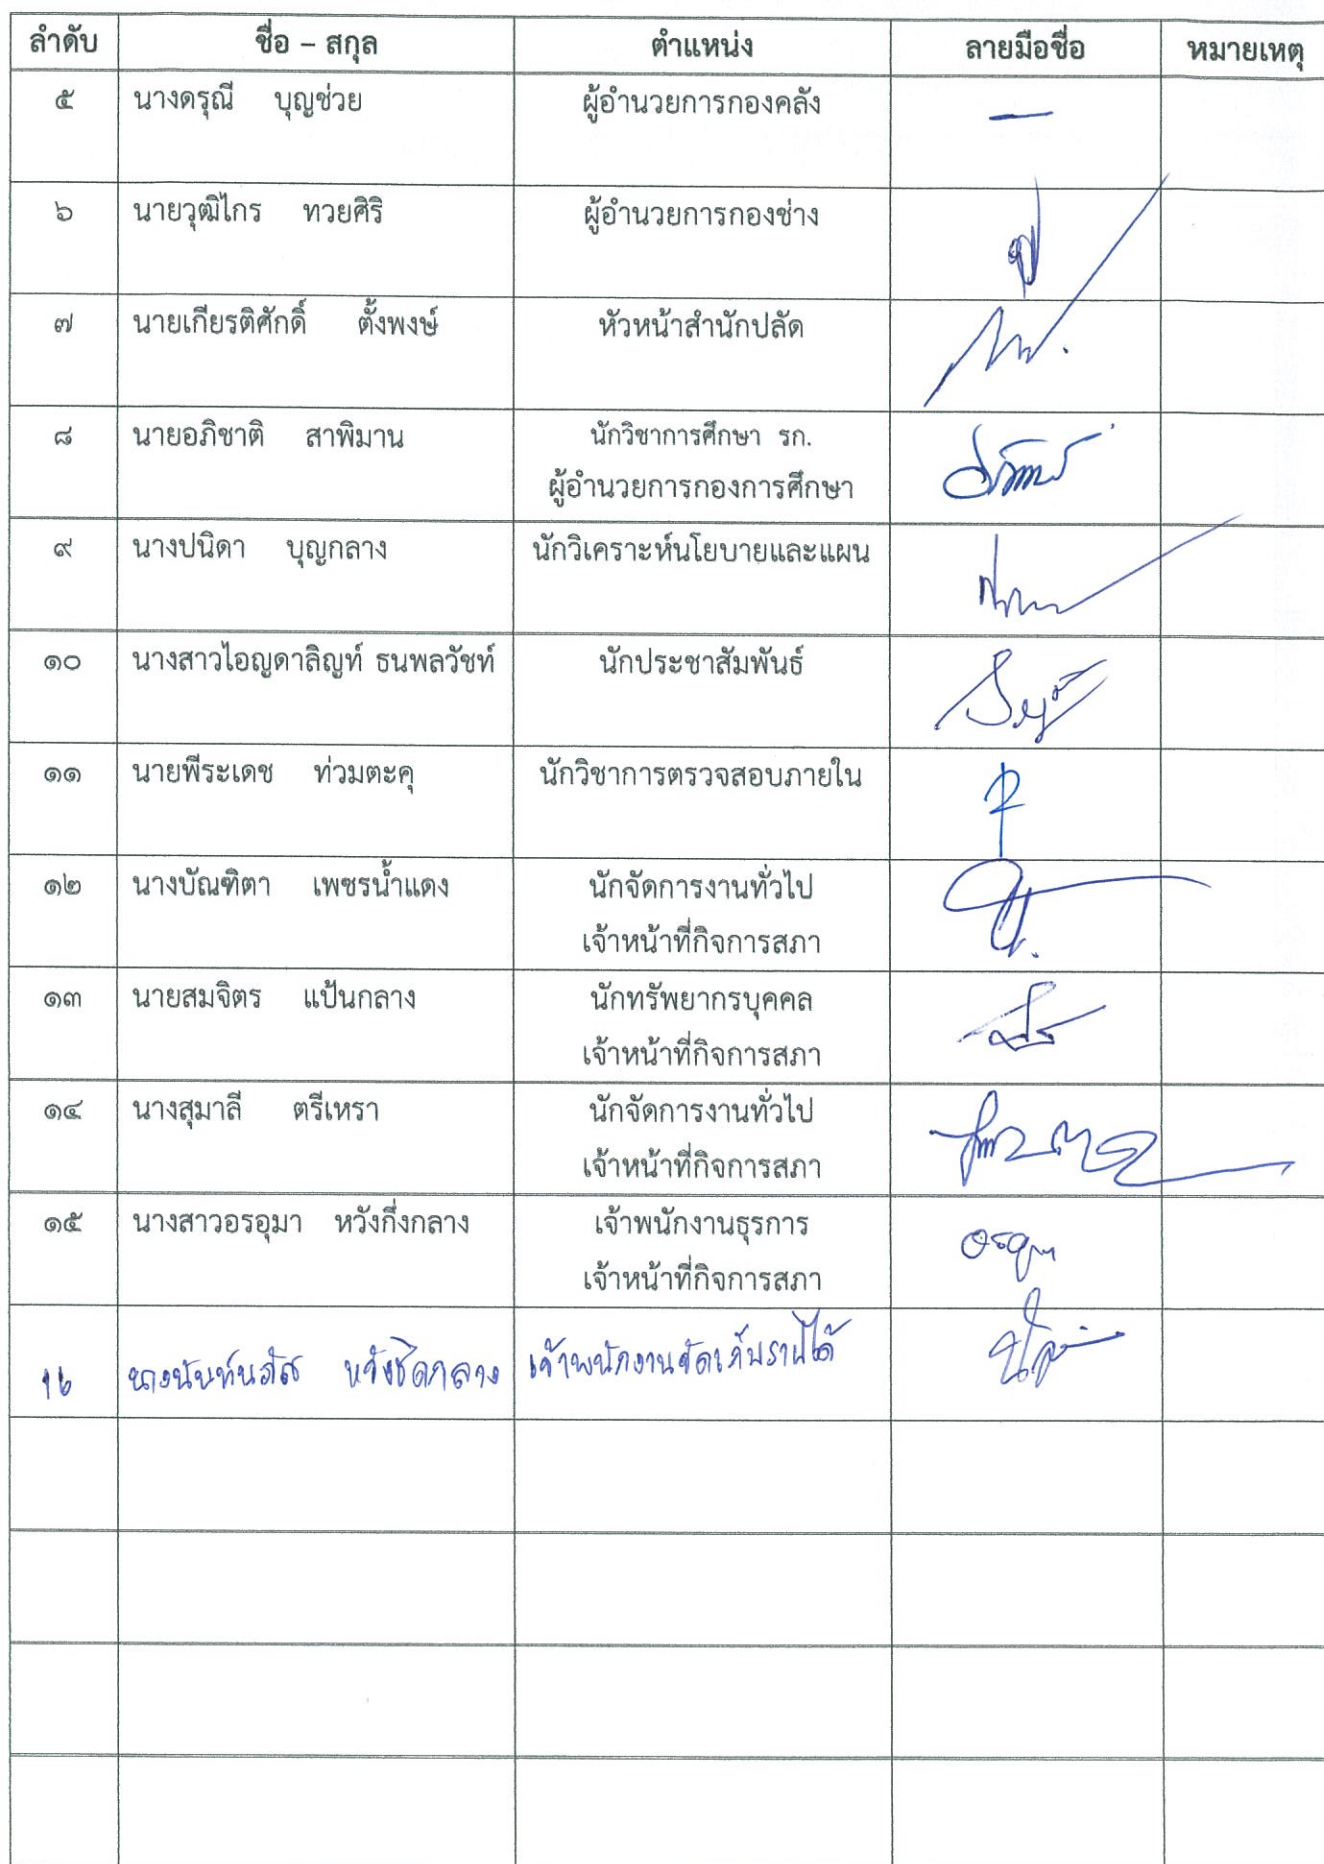 ลำดับ ชื่อ – สกุล ตำแหน่ง ลายมือชื่อ หมายเหตุ
๕ นางดรุณี บุญช่วย ผู้อำนวยการกองคลัง –
๖ นายวุฒิไกร ทวยศิริ ผู้อำนวยการกองช่าง
๗ นายเกียรติศักดิ์ ตั้งพงษ์ หัวหน้าสำนักปลัด
๘ นายอภิชาติ สาพิมาน นักวิชาการศึกษา รก.
ผู้อำนวยการกองการศึกษา
๙ นางปนิดา บุญกลาง นักวิเคราะห์นโยบายและแผน
๑๐ นางสาวไอญดาลิญท์ ธนพลวัชท์ นักประชาสัมพันธ์
๑๑ นายพีระเดช ท่วมตะคุ นักวิชาการตรวจสอบภายใน
๑๒ นางบัณฑิตา เพชรน้ำแดง นักจัดการงานทั่วไป
เจ้าหน้าที่กิจการสภา
๑๓ นายสมจิตร แป้นกลาง นักทรัพยากรบุคคล
เจ้าหน้าที่กิจการสภา
๑๔ นางสุมาลี ตรีเหรา นักจัดการงานทั่วไป
เจ้าหน้าที่กิจการสภา
๑๕ นางสาวอรอุมา หวังกึ่งกลาง เจ้าพนักงานธุรการ
เจ้าหน้าที่กิจการสภา
๑๖ นางนันท์นภัส หวังชิดกลาง เจ้าพนักงานจัดเก็บรายได้